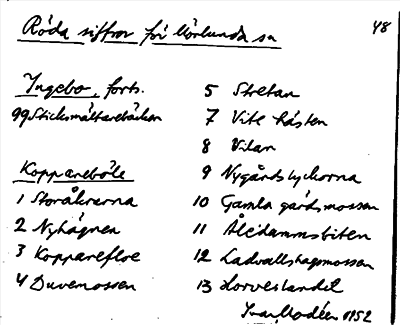 Röda siffror för Mörlunda sn
48
Ingebo, forts.
99 Sticksmåttarebäcken
Kopparebo̊le
1 Storåkrarna
2 Nyhagnen
3 Kopparefloe
4 Duvemossen
5 Stretan
7 Vite hästen
8 Vilan
9 Nygårdslyckorna
10 Gamla gårdsmossen
11 Åledammsbiten
12 Ladvallshagsmossen
13 Horveslandet
Ivar Modéer 1952